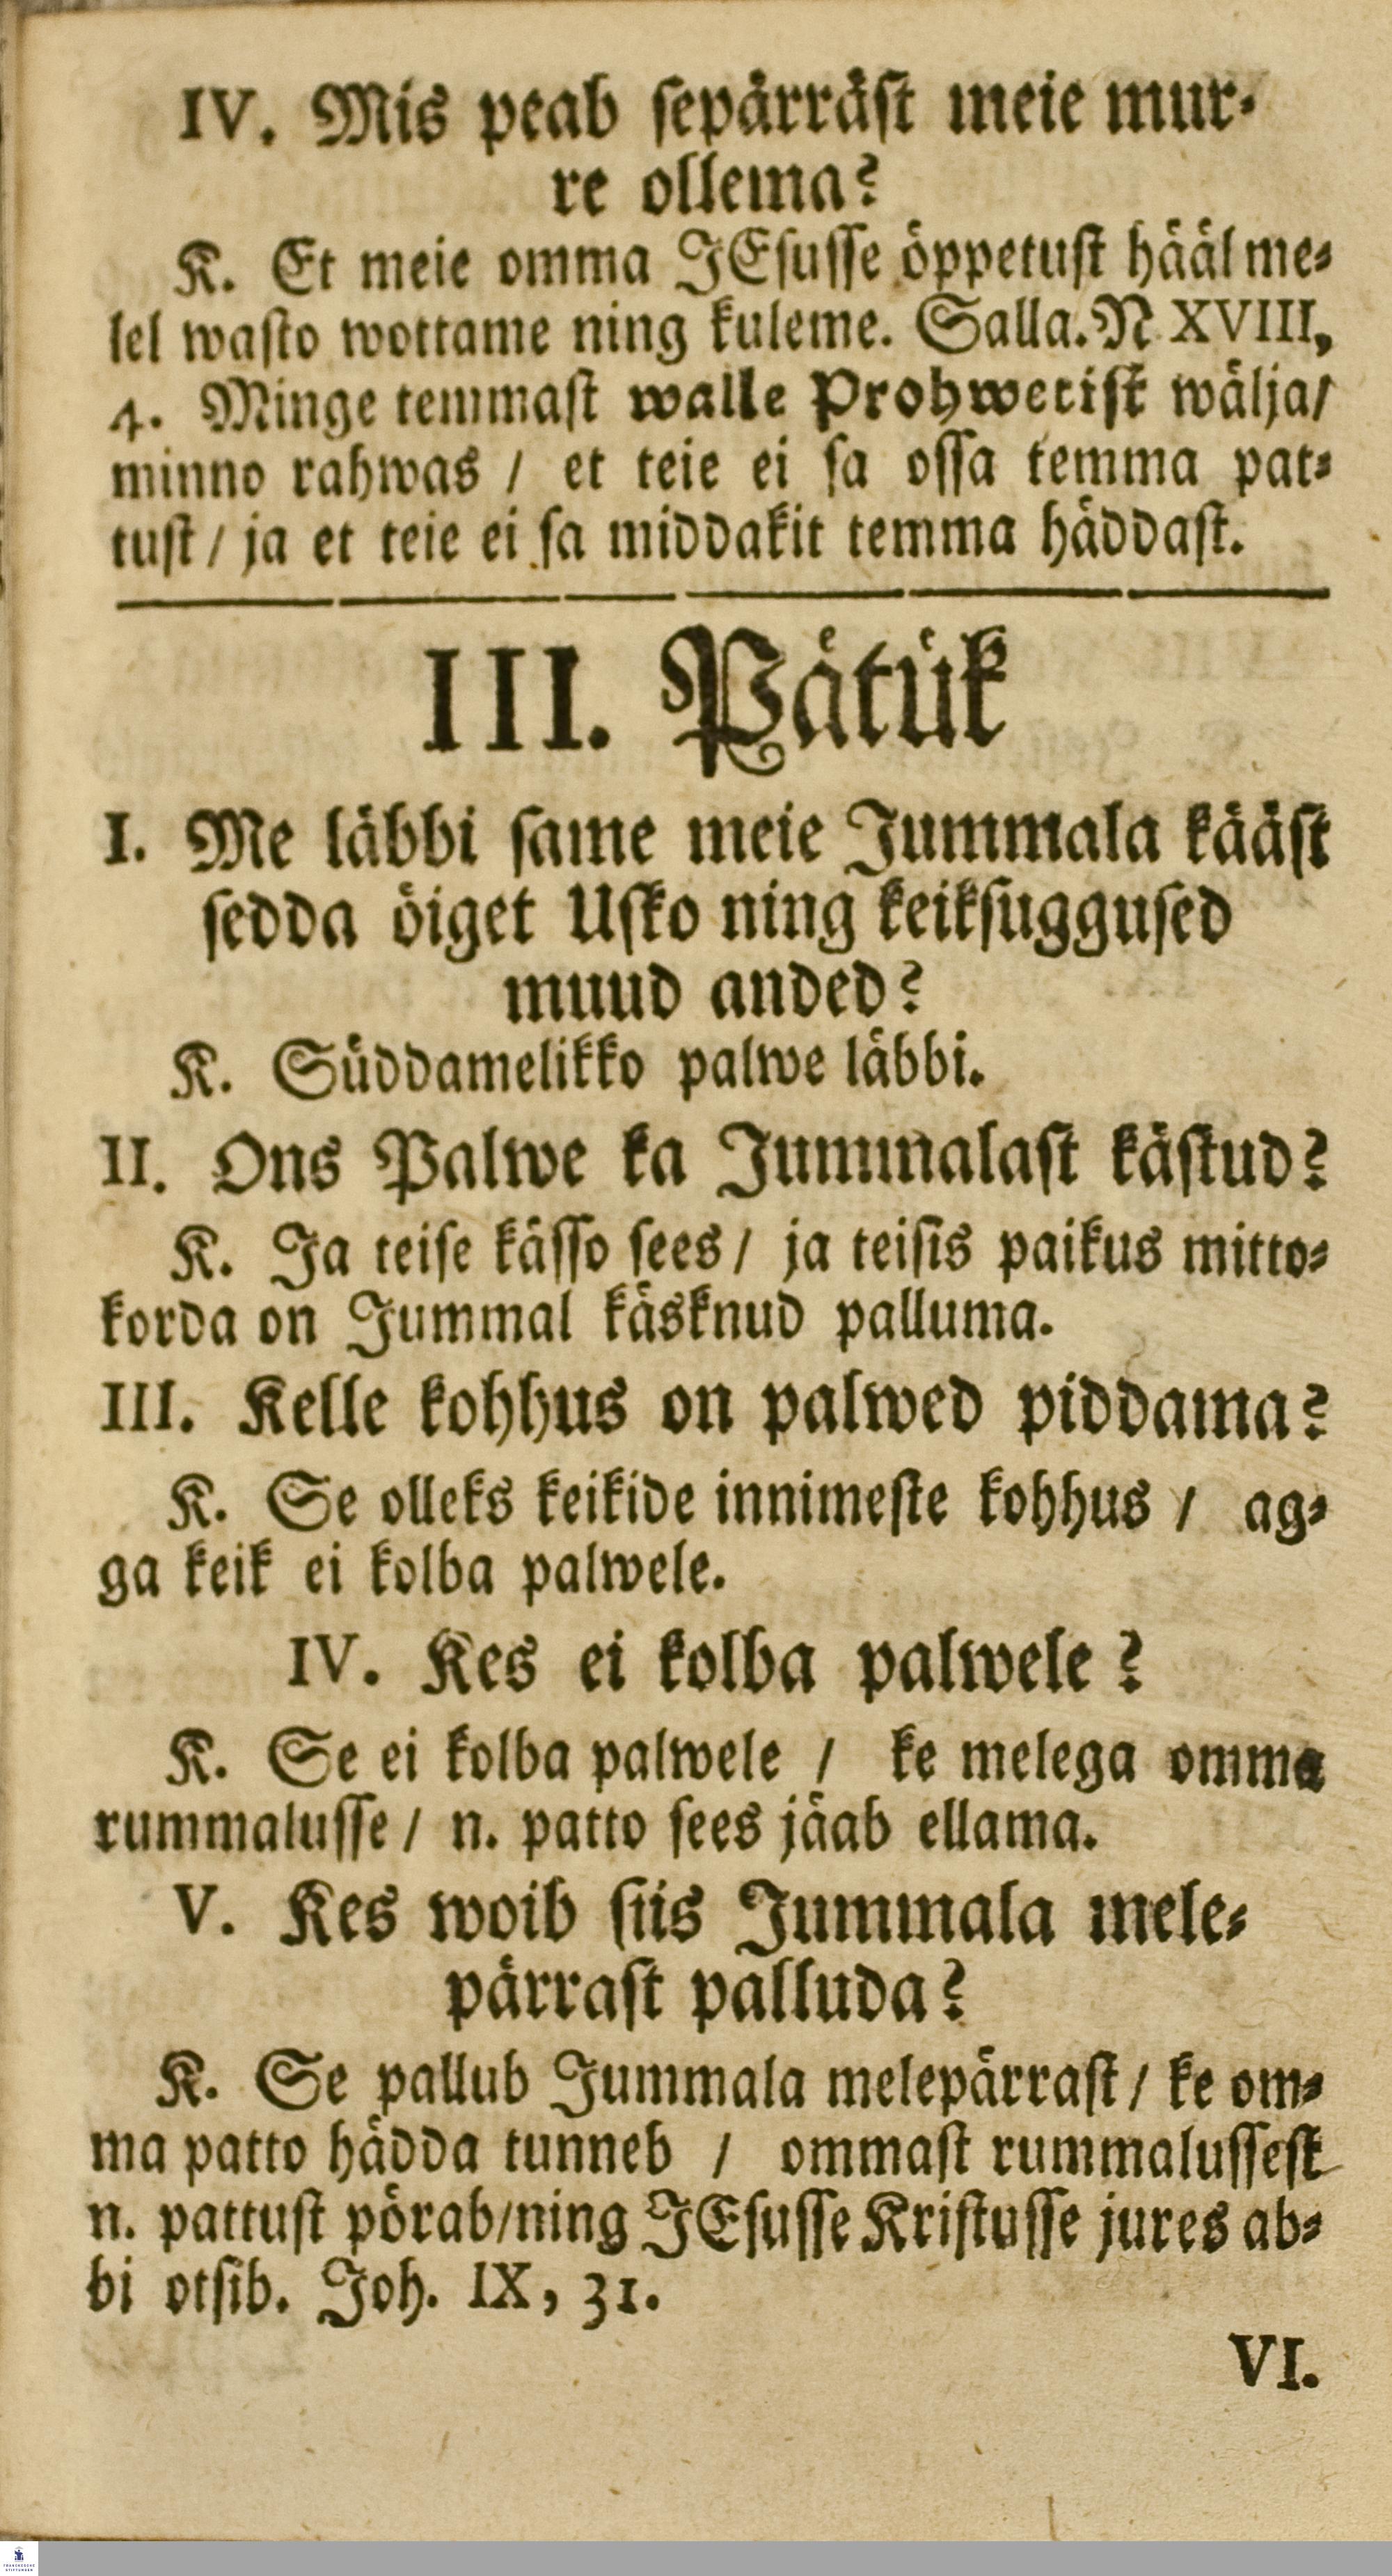 IV. Mis peab sepärräst meie mur-
re ollema?
K. Et meie omma JEsusse öppetust hääl me-
lel wasto wottame ning kuleme. Salla. N XVIII,
4. Minge temmast walle Prohwetist wälja/
minno rahwas / et teie ei sa ossa temma pat-
tust / ja et teie ei sa middakit temma häddast.
III. Pätük
I. Me läbbi same meie Jummala kääst
sedda öiget Usko ning keiksuggused
muud anded?
K. Süddamelikko palwe läbbi.
II. Ons Palwe ka Jummalast kästud?
K. Ja teise kässo sees / ja teisis paikus mitto-
korda on Jummal käsknud palluma.
III. Kelle kohhus on palwed piddama?
K. Se olleks keikide innimeste kohhus / ag-
ga keik ei kolba palwele.
IV. Kes ei kolba palwele?
K. Se ei kolba palwele / ke melega omma
rummalusse / n. patto sees jääb ellama.
V. Kes woib siis Jummala mele-
pärrast palluda?
K. Se pallub Jummala melepärrast / ke om-
ma patto hädda tunneb / ommast rummalussest
n. pattust pörab/ning JEsusse Kristusse jures ab-
bi otsib. Joh. IX, 31.
VI.